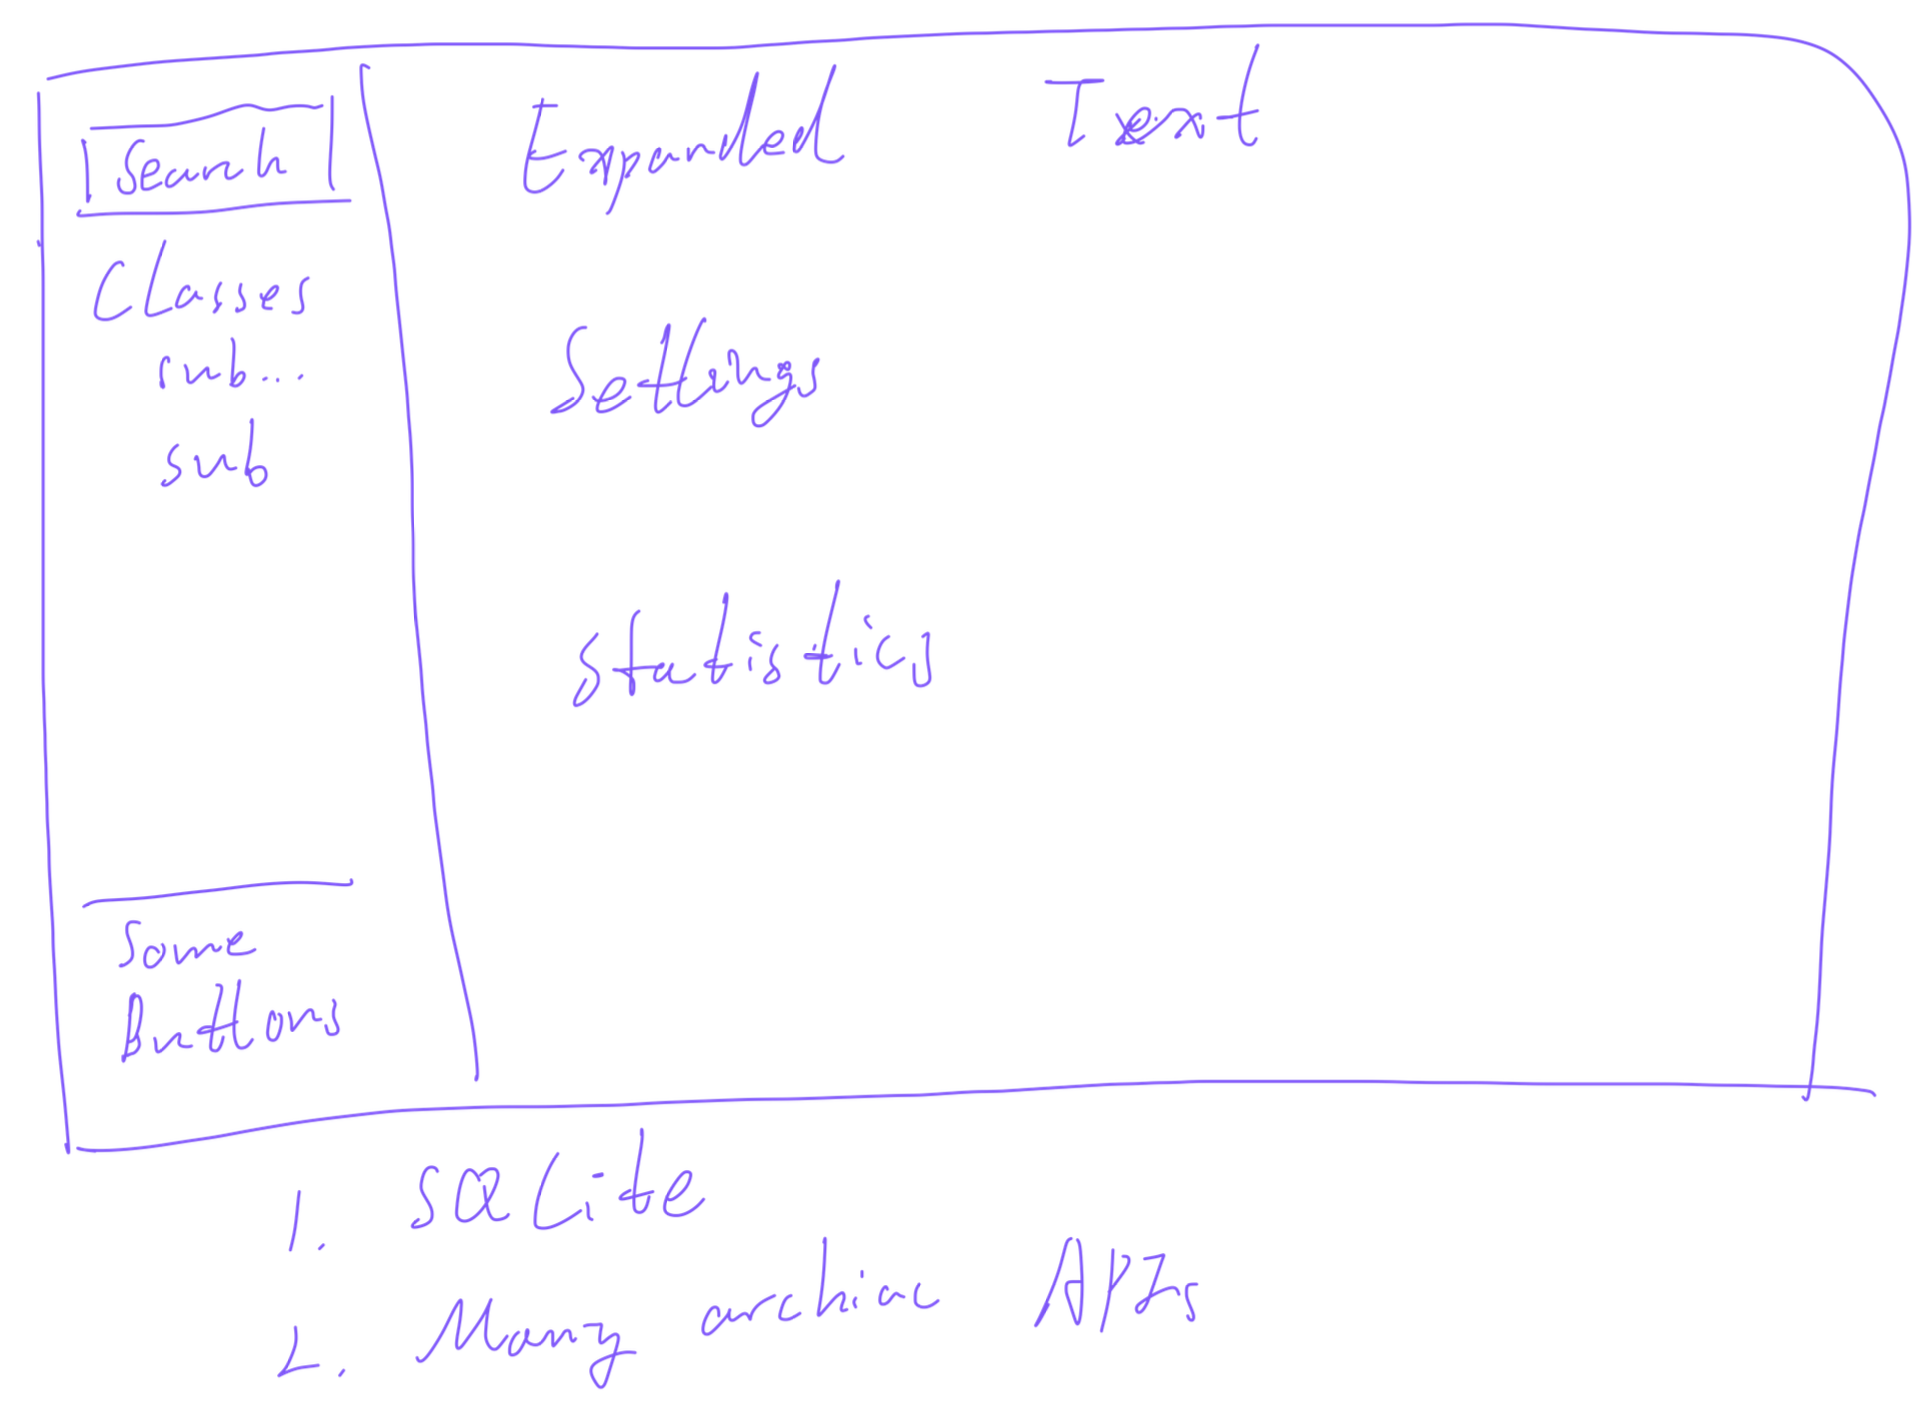 Search
Classes
sub...
sub
Some
Buttons
Expanded Text
Settings
Statistics
1. SQLite
2. Many archiac APIs